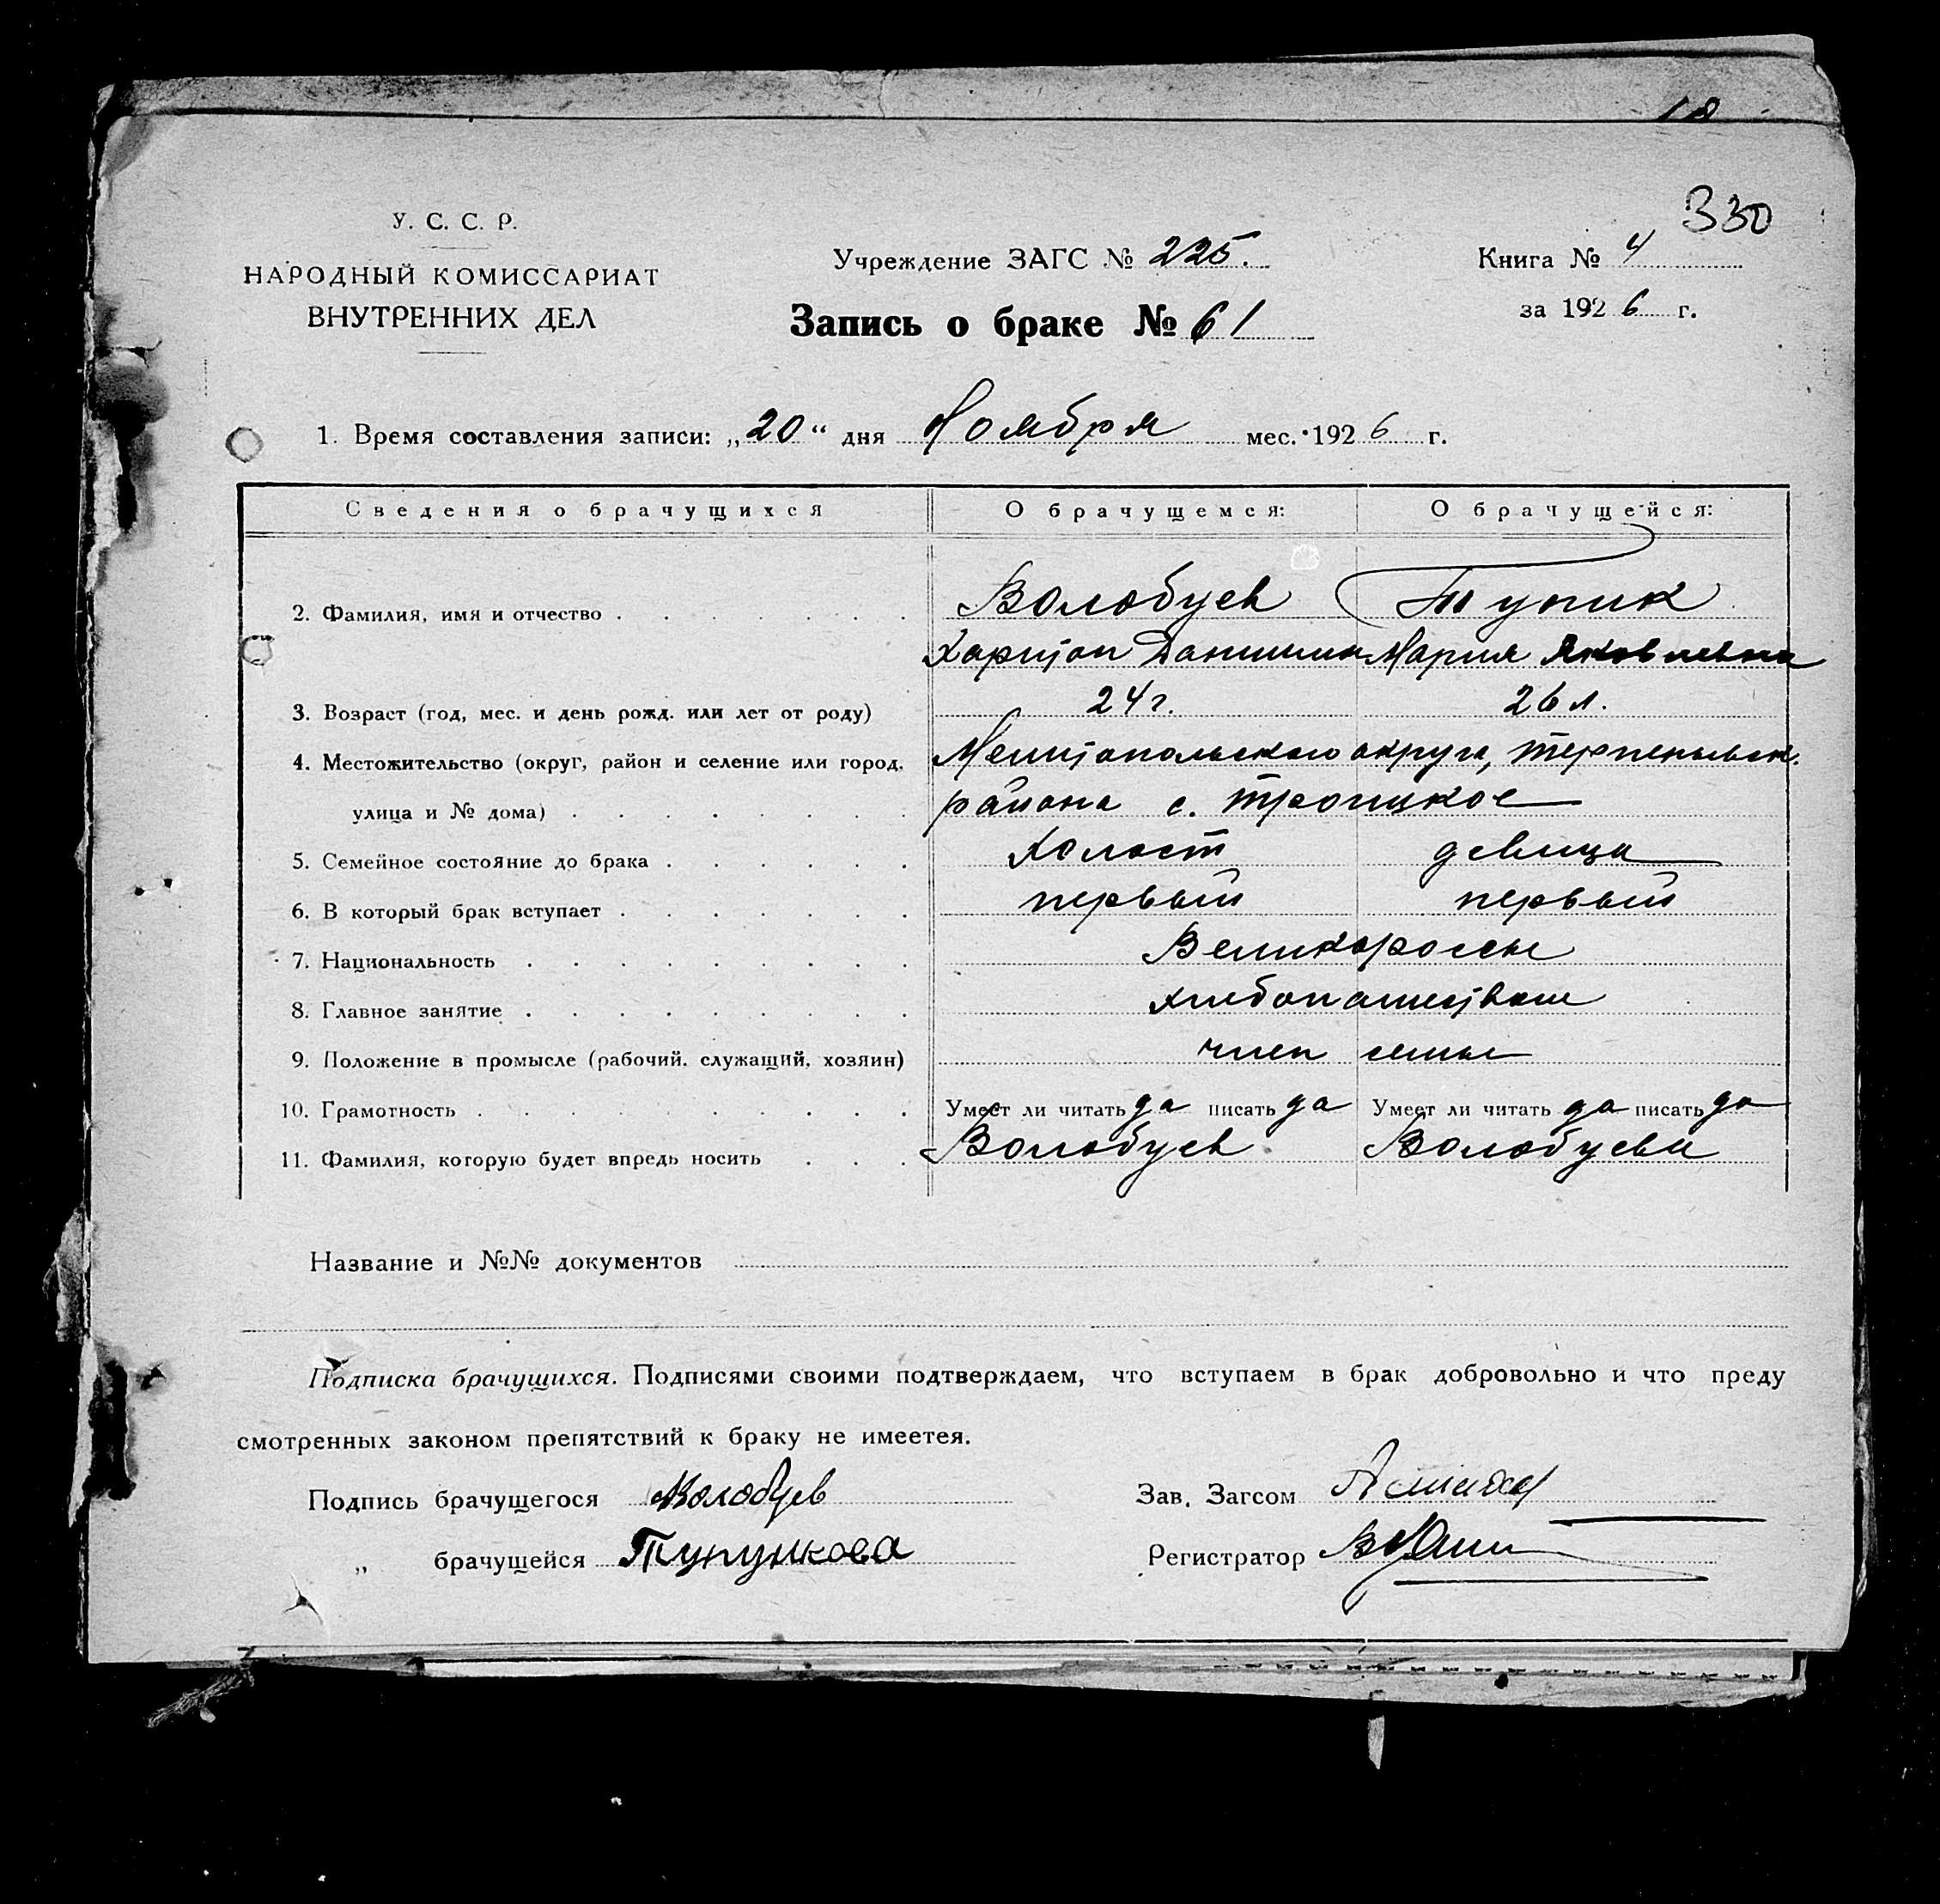 330
У. С. С. Р.
НАРОДНЫЙ КОМИССАРИАТ
ВНУТРЕННИХ ДЕЛ
Учреждение ЗАГС № 225.
Книга № 4
за 1926 г.
Запись о браке № 61
1. Время составления записи: „20“ дня Ноября мес. 1926 г.
Сведения о брачущихся О брачущемся: О брачущейся:
2. Фамилия, имя и отчество Волобуев Тупик
Харитон Данилин Мария Яковлевна
3. Возраст (год, мес. и день рожд. или лет от роду) 24 г. 26 л.
4. Местожительство (округ, район и селение или город, Мелитопольского округа, Терпеньевск.
улица и № дома) района с. Троицкое
5. Семейное состояние до брака Холост девица
6. В который брак вступает первый первый
7. Национальность Великороссы
8. Главное занятие Хлебопашество
9. Положение в промысле (рабочий, служащий, хозяин) член семьи
10. Грамотность Умеет ли читать да писать да Умеет ли читать да писать да
11. Фамилия, которую будет впредь носить Волобуев Волобуева
Название и №№ документов
Подписка брачущихся. Подписями своими подтверждаем, что вступаем в брак добровольно и что преду
смотренных законом препятствий к браку не имеетея.
Подпись брачущегося Волобуев Зав. Загсом
„ брачущейся Тупункова Регистратор